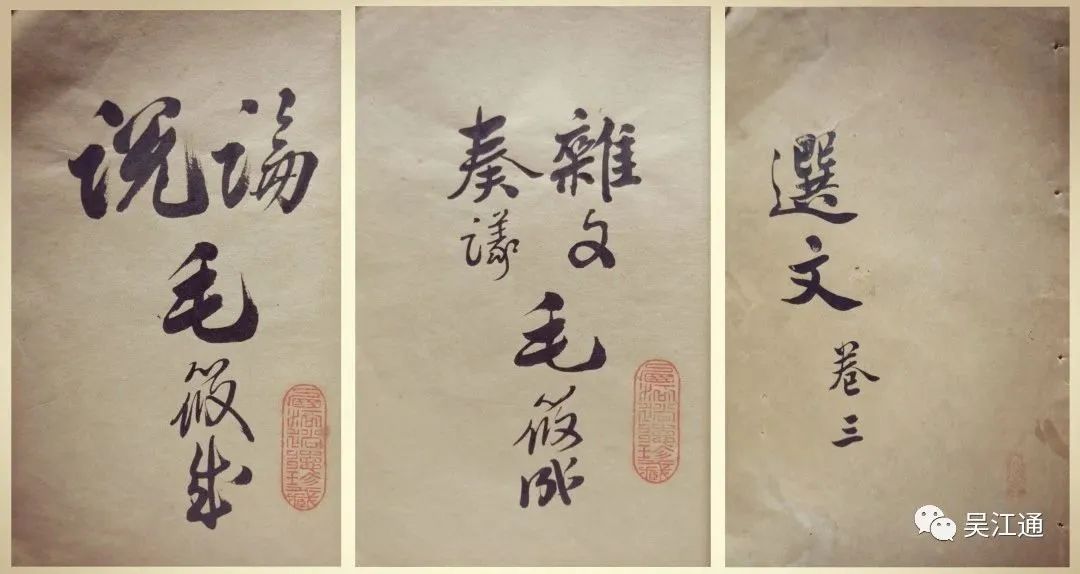 論說
毛筱成
雜文
奏議
毛筱成
選文
卷三
吴江通